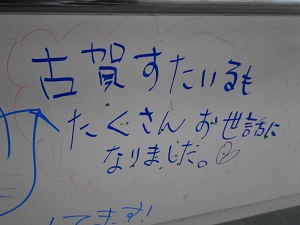 古賀すたいるも
たくさん お世話に
なりました。
してます!